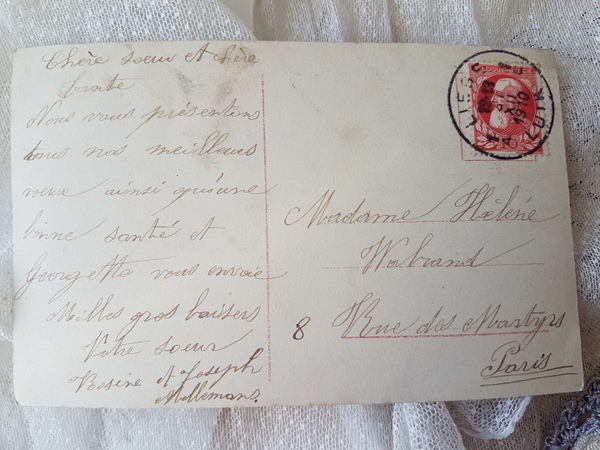 Chère soeur et chère
tante
Nous vous présentons
tous nos meilleurs
voeux ainsi qu'une
bonne santé et
Georgette vous envoie
Milles gros baisers
Votre soeur
et Joseph
Millemans.
Madame Hélène
Wabrand
8 Rue des Martyrs
Paris
LIEGE
1910